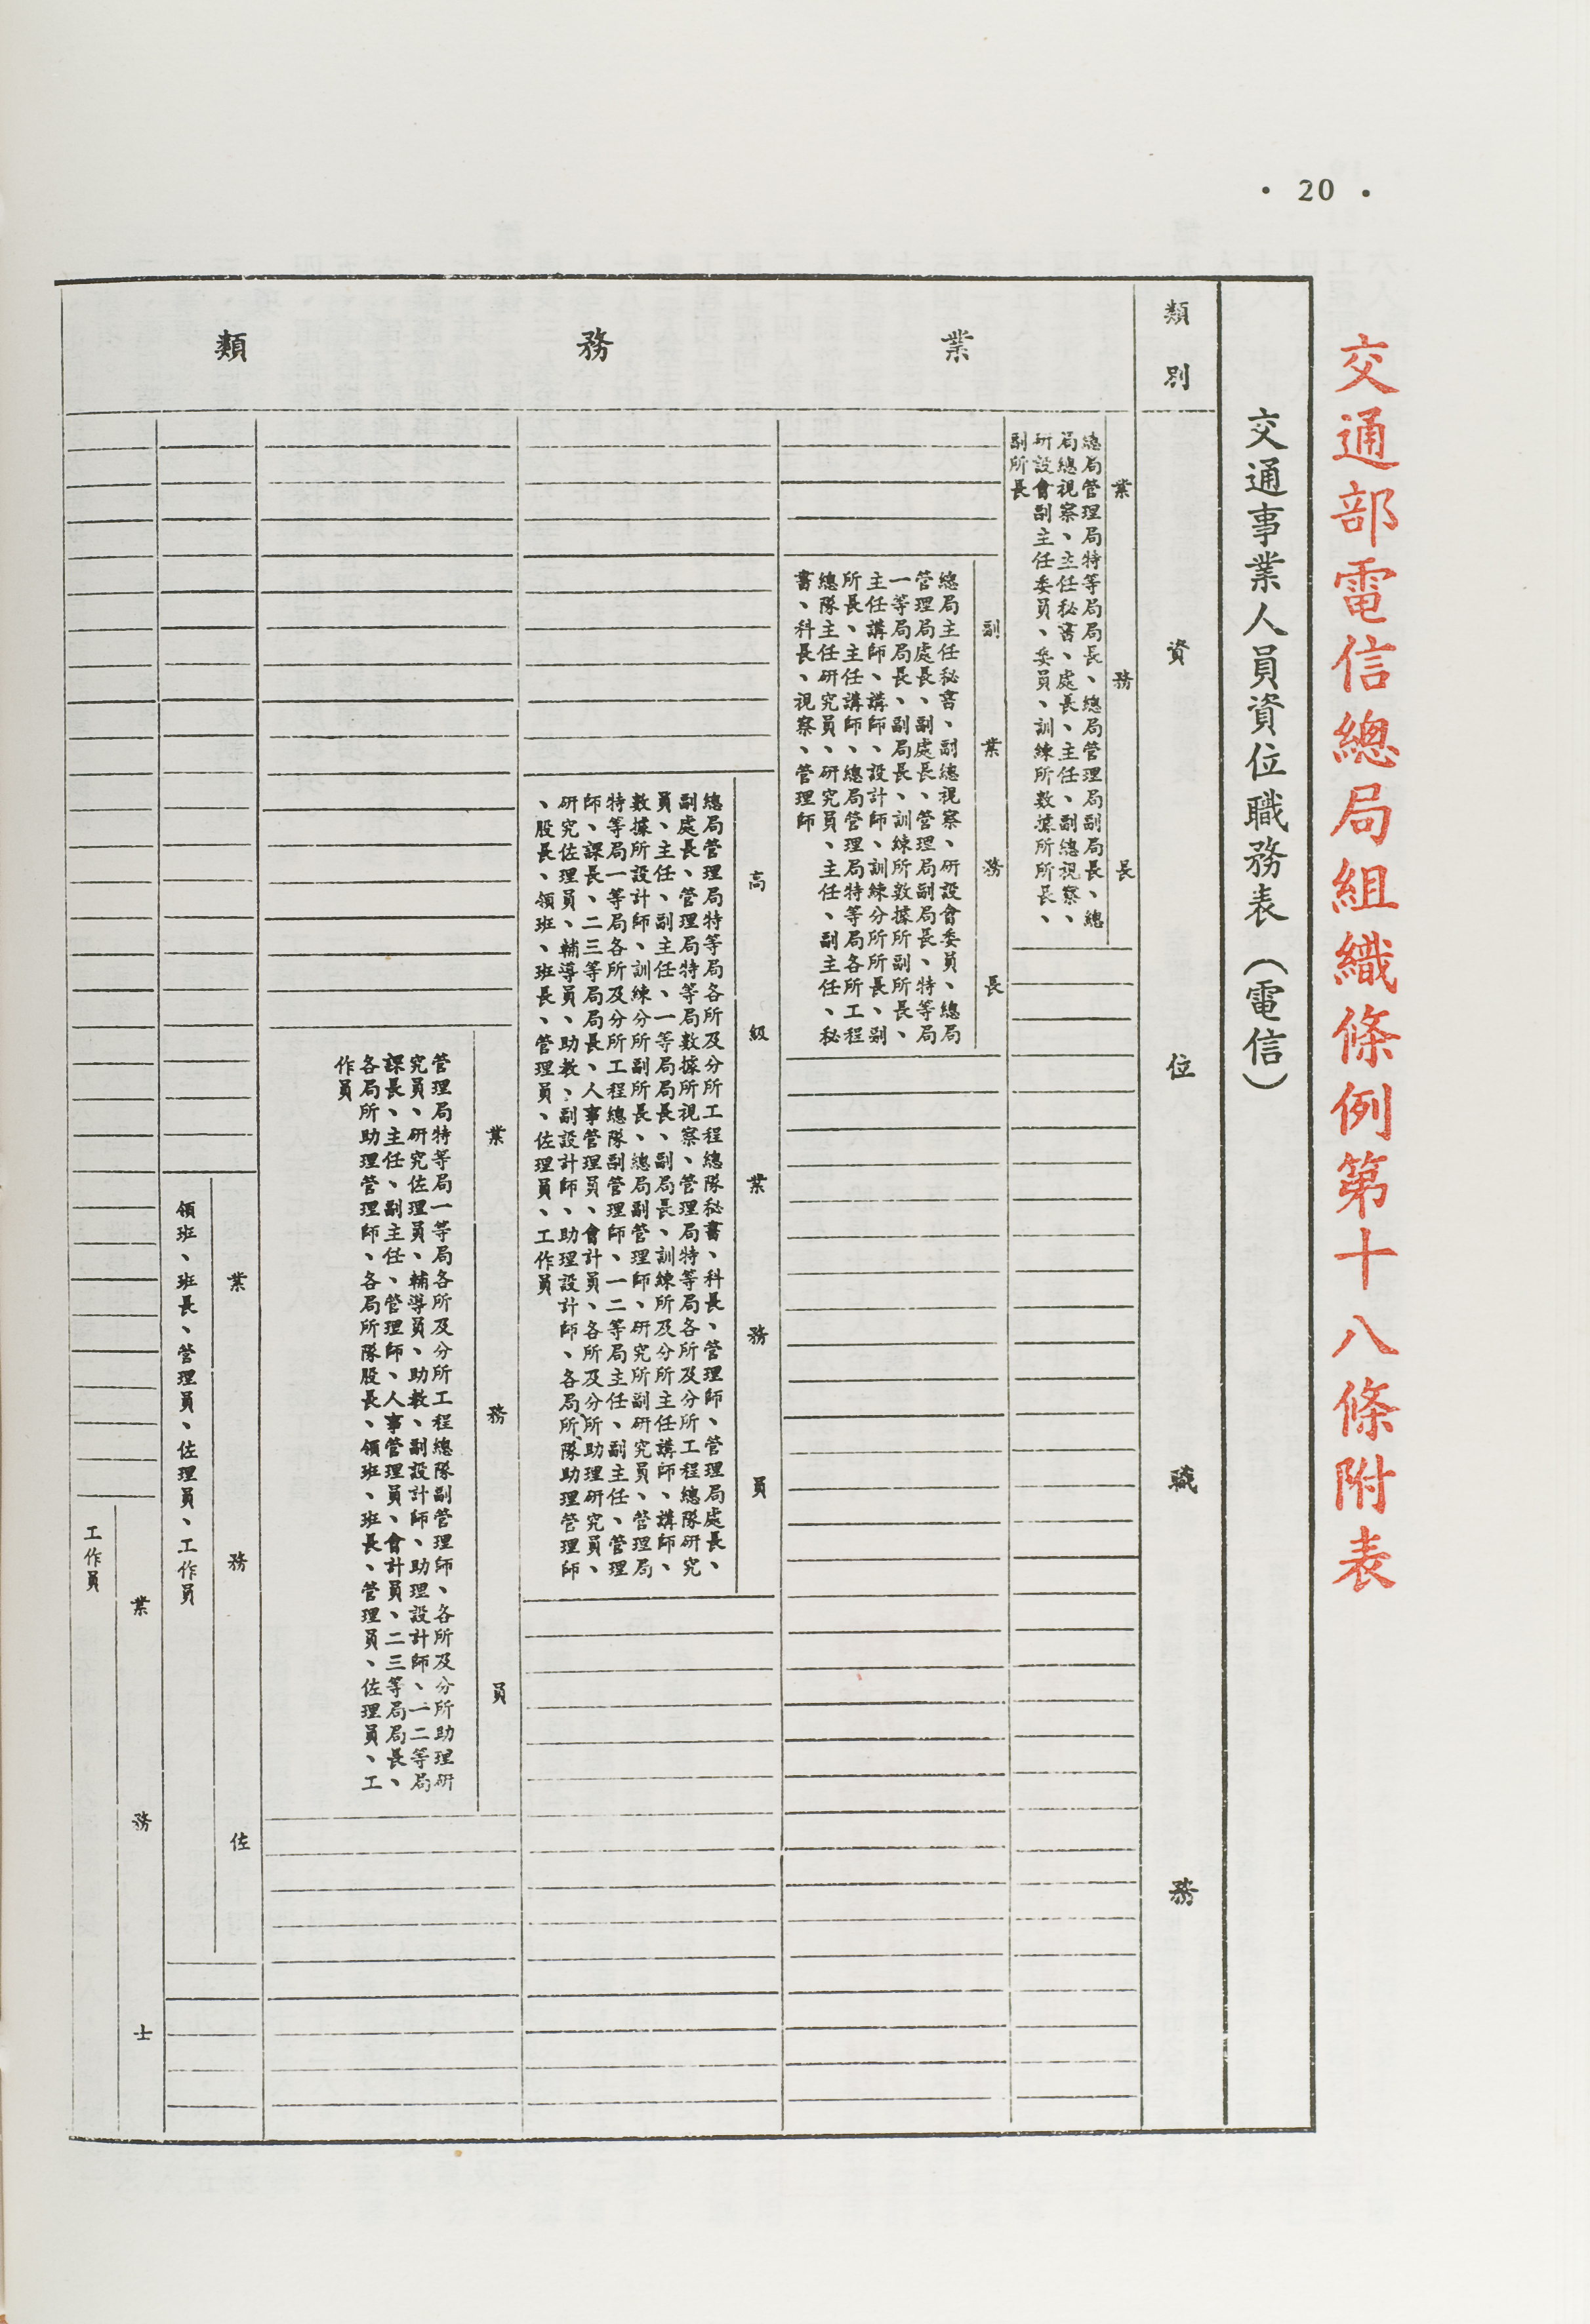 • 20 •
交通部電信總局組織條例第十八條附表
交通事業人員資位職務表（電信）
類別
資位職務
業務類
業務長
總局管理局特等局局長、總局管理局副局長、總
局總視察、主任秘書、處長、主任、副總視察、
研設會副主任委員、委員、訓練所數據所所長、
副所長
副業務長
總局主任秘書、副總視察、研設會委員、總局
管理局處長、副處長、管理局副局長、特等局
一等局局長、副局長、訓練所數據所副所長、
主任講師、講師、設計師、訓練分所所長、副
所長、主任講師、總局管理局特等局各所工程
總隊主任研究員、研究員、主任、副主任、秘
書、科長、視察、管理師
高級業務員
總局管理局特等局各所及分所工程總隊秘書、科長、管理師、管理局處長、
副處長、管理局特等局數據所視察、管理局特等局各所及分所工程總隊研究
員、主任、副主任、一等局局長、副局長、訓練所及分所主任講師、講師、
數據所設計師、訓練分所副所長、總局副管理師、研究所副研究員、管理局
特等局一等局各所及分所工程總隊副管理師、一二等局主任、副主任、管理
師、課長、二三等局局長、人事管理員、會計員、各所及分所助理研究員、
研究佐理員、輔導員、助教、副設計師、助理設計師、各局所隊助理管理師
、股長、領班、班長、管理員、佐理員、工作員
業務員
管理局特等局一等局各所及分所工程總隊副管理師、各所及分所助理研
究員、研究佐理員、輔導員、助教、副設計師、助理設計師、一二等局
課長、主任、副主任、管理師、人事管理員、會計員、二三等局局長、
各局所助理管理師、各局所隊股長、領班、班長、管理員、佐理員、工
作員
業務佐
領班、班長、管理員、佐理員、工作員
業務士
工作員